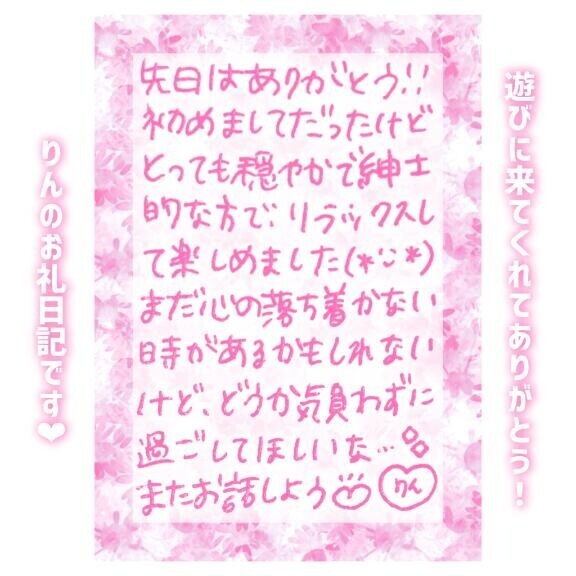 遊びに来てくれてありがとう！
先日はありがとう!!
初めましてだったけど
とっても穏やかで紳士
的な方で、リラックスし
て楽しめました(*ᵕᵕ*)
まだ心の落ち着かない
時があるかもしれない
けど、どうか気負わずに
過ごしてほしいな…
またお話しよう
りん
りんのお礼日記です❤